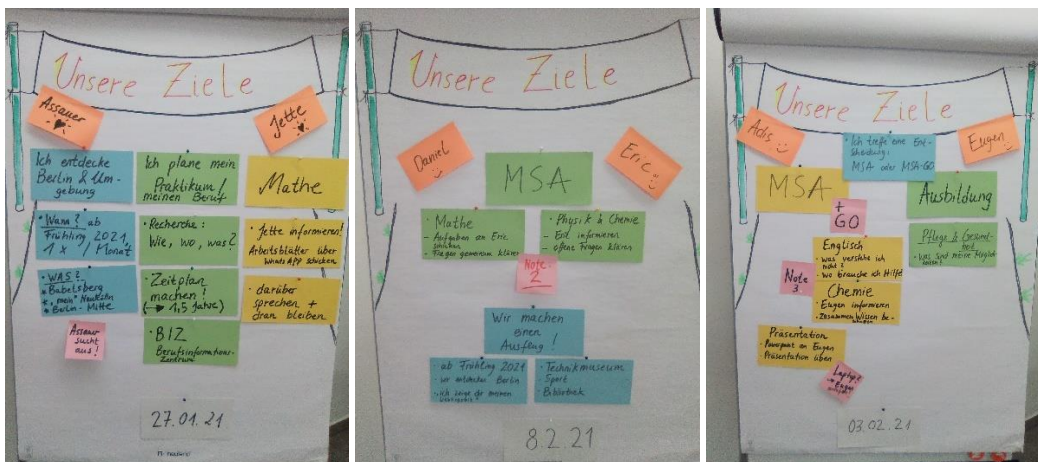 Unsere Ziele
Assauer
Jette
Ich entdecke
Berlin & Um-
gebung
Ich plane mein
Praktikum/
meinen Beruf
Mathe
• Wann? ab
Frühling 2021
1 x / Monat
• Recherche:
Wie, wo, was?
• Jette informieren!
Arbeitsblätter über
WhatsAPP schicken
• WAS?
• Babelsberg
• "mein" Neukölln
• Berlin-Mitte
• Zeitplan
machen!
(→ 1,5 Jahre)
• darüber
sprechen +
dran bleiben
Assauer
sucht
aus!
• BIZ
Berufsinformations-
zentrum
27.01.21
Unsere Ziele
Daniel
Eric
MSA
• Mathe
– Aufgaben an Eric
schicken
– Fragen gemeinsam klären
• Physik & Chemie
– Eric informieren
– offene Fragen klären
Note:
2
Wir machen
einen
Ausflug!
• ab Frühling 2021
• wir entdecken Berlin
• ich zeige dir meinen
• Technikmuseum
• Sport
• Bibliothek
8.2.21
Unsere Ziele
Adis
Eugen
• Ich treffe eine Ent-
scheidung:
MSA oder MSA-GO
MSA
+
GO
Ausbildung
Englisch
• was verstehe ich
nicht?
• wo brauche ich Hilfe?
Pflege & Gesund-
heit
• was sind meine Möglich-
keiten?
Note
3
Chemie
• Eugen informieren
• Zusammen Wissen be-
Präsentation
• Powerpoint an Eugen
• Präsentation üben
Laptop?
→ Eugen
03.02.21